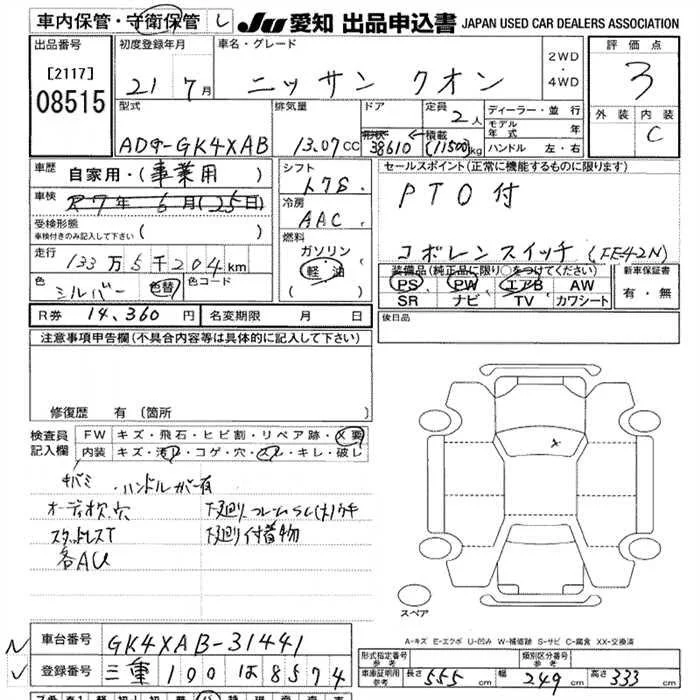 車内保管・守衛保管 し JU 愛知 出品申込書 JAPAN USED CAR DEALERS ASSOCIATION
出品番号 [2117] 08515
初度登録年月 21年 7月
車名・グレード ニッサン クオン
2WD ・ 4WD
評価点 3
外装 内装 C
型式 ADG-GK4XAB
排気量 13.07CC
ドア 形状 38610
定員 2人
積載 (11500)kg
ディーラー・並行
モデル年式 年
ハンドル 左・右
車歴 自家用・(事業用)
車検 R7年 6月(25日)
受検形態 車検付きのみ記入して下さい ( )
走行 133万5千204km
色 シルバー 色替 色コード
シフト F7S
冷房 AAC
燃料 ガソリン 軽・油 ( )
セールスポイント(正常に機能するものに限ります)
PTO付
コボレーンスイッチ (FE42N)
装備品(純正品に限り○をつけてください)
PS PW エアB AW
SR ナビ TV カワシート
新車保証書 有・無
R券 14,360円 名変期限 月 日
後日品
注意事項申告欄(不具合内容等は具体的に記入して下さい)
修復歴 有(箇所
検査員記入欄
FW キズ・飛石・ヒビ割・リペア跡・X要
内装 キズ・汚レ・コゲ・穴・スレ・キレ・破レ
ハンドルカバー有
オーディオ欠、穴
スタッドレスT
下廻り付着物
各AU
スペア
A-キズ E-エクボ U-凹み W-補修跡 S-サビ C-腐食 XX-交換済
車台番号 GK4XAB-31441
登録番号 三重 100 は 8574
形式指定番号 参考
類別区分番号 参考
車庫証明用 参考 長さ 555cm 幅 249cm 高さ 333cm